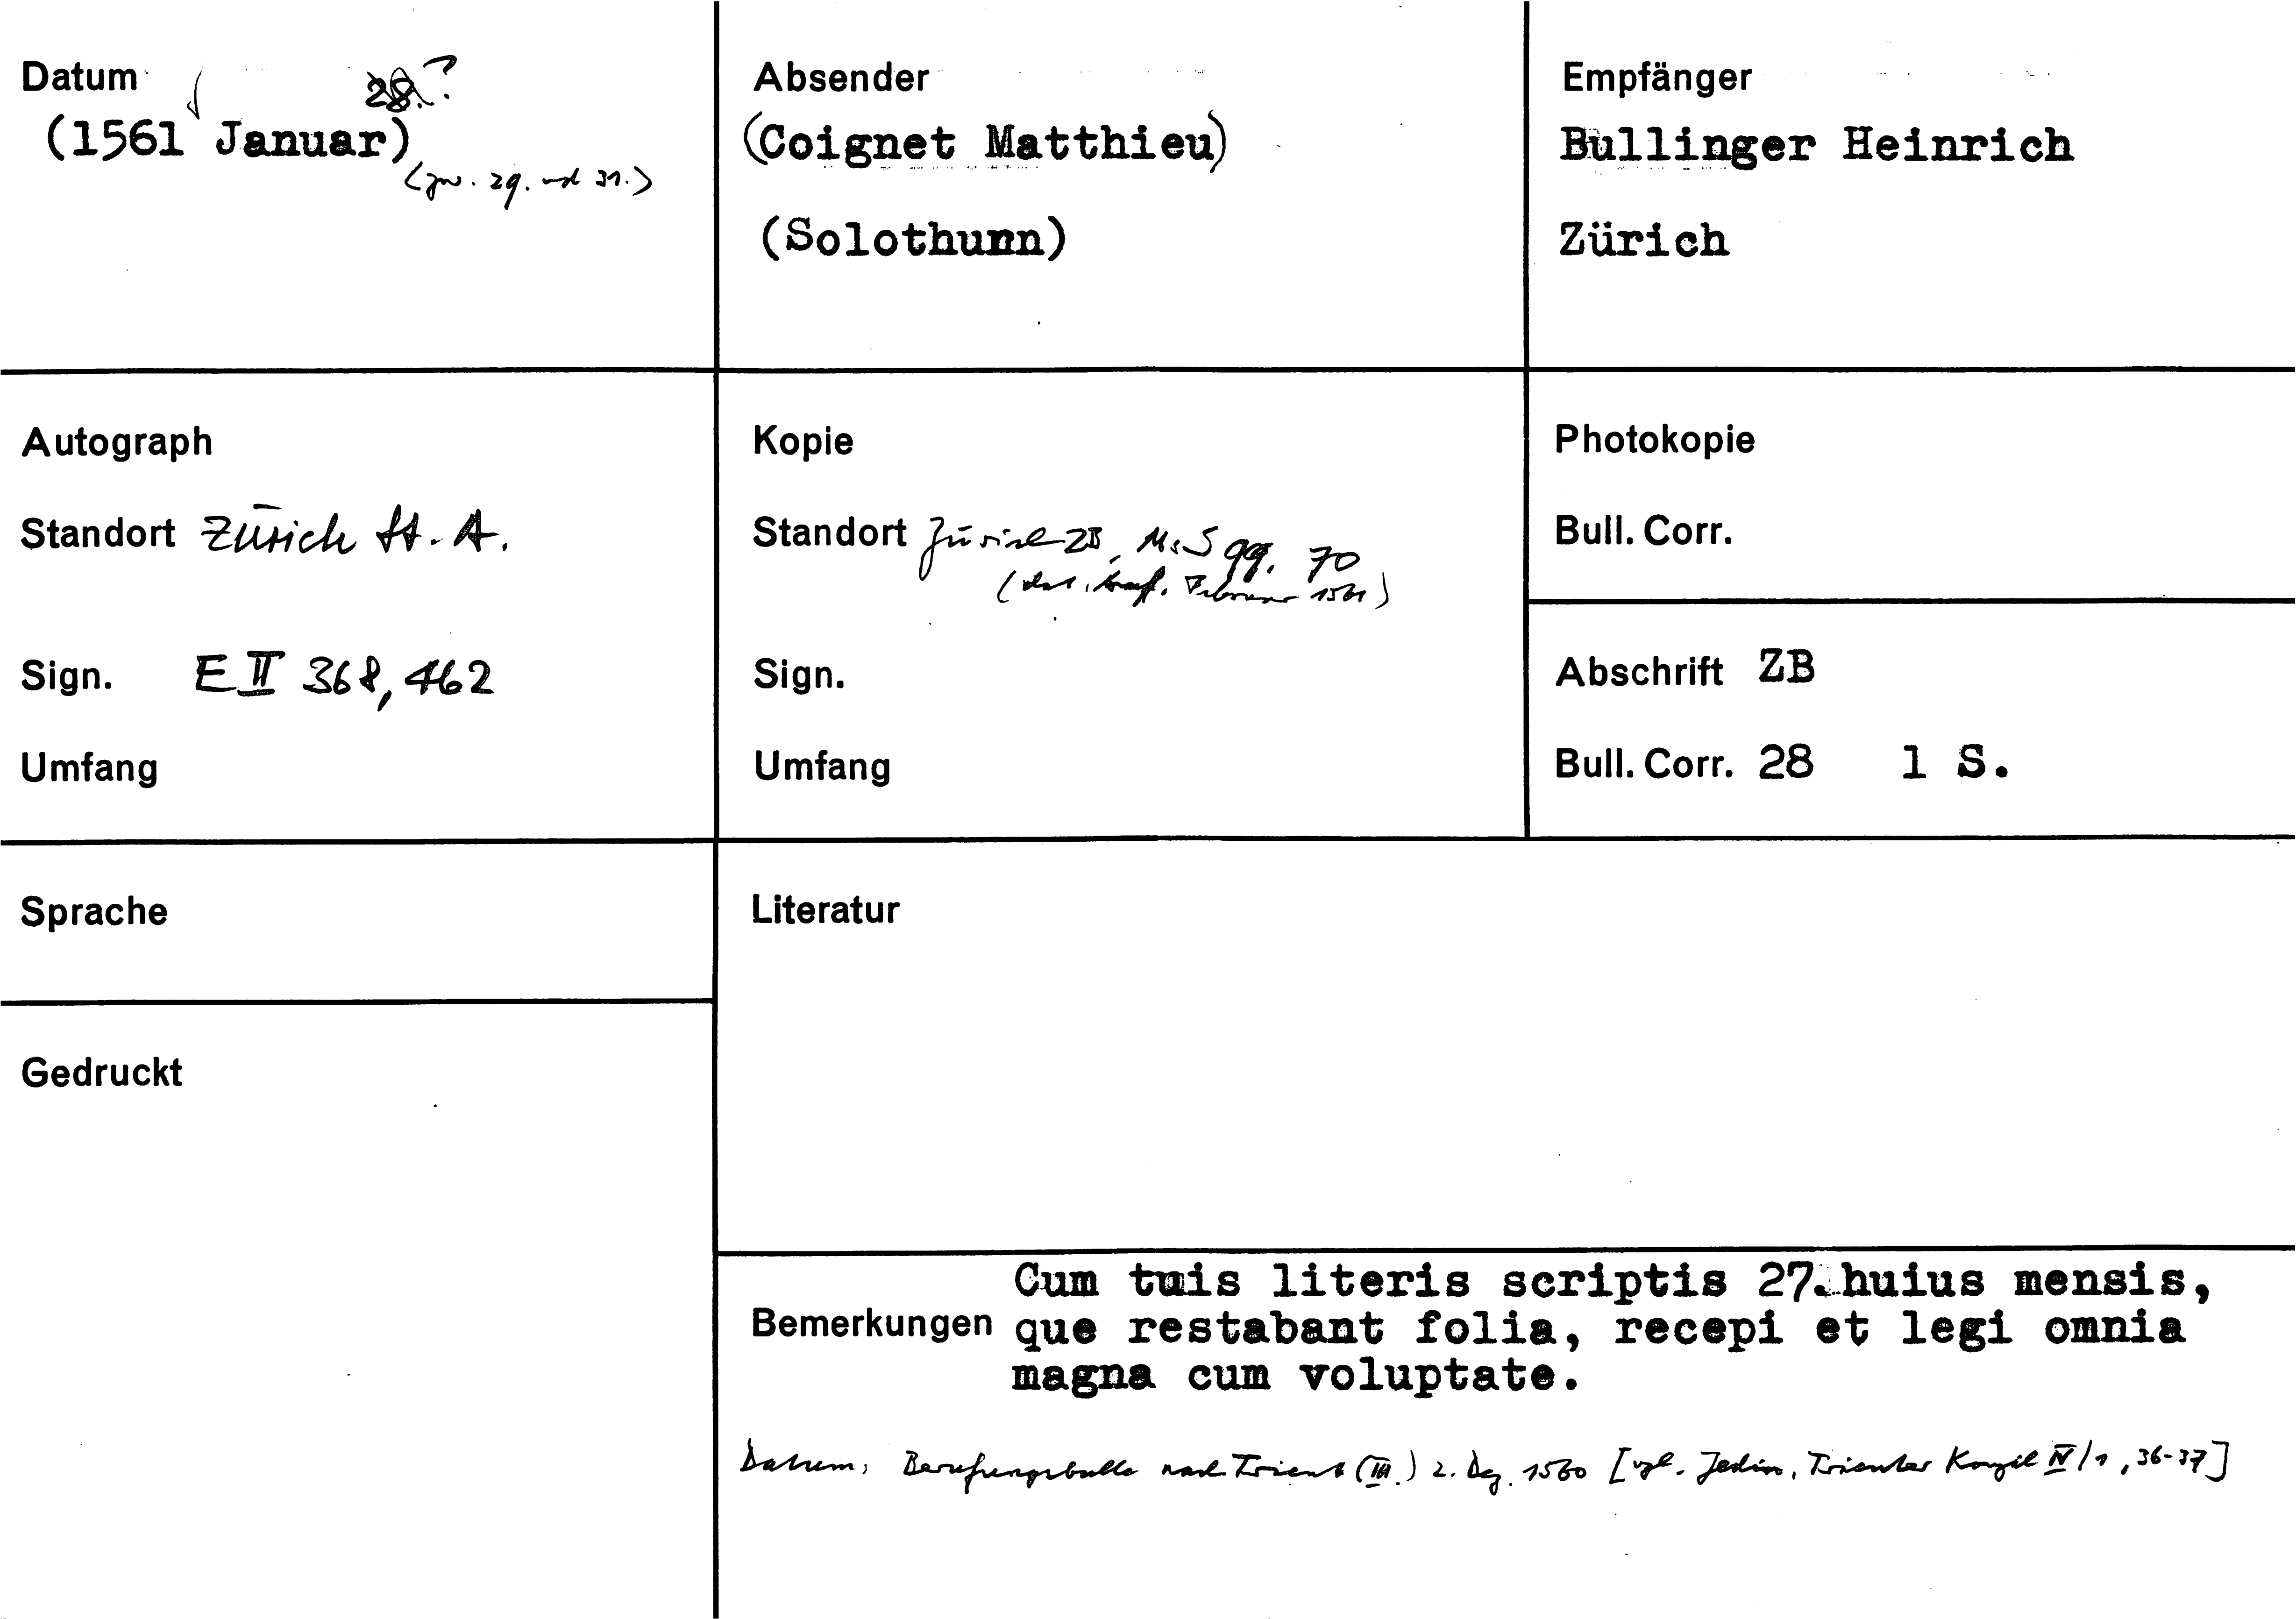 Datum 28.?
(1561 Januar)
(zw. 29. und 31.)
Absender
(Coignet Matthieu)
(Solothurn)
Empfänger
Bullinger Heinrich
Zürich
Autograph
Standort Zürich St. A.
Sign. E II 368, 462
Umfang
Kopie
Standort Zürich ZB, Ms S 99, 70
(dat. Anf. Februar 1561)
Sign.
Umfang
Photokopie
Bull. Corr.
Abschrift ZB
Bull. Corr. 28 1 S.
Sprache
Gedruckt
Literatur
Bemerkungen
Cum tuis literis scriptis 27. huius mensis,
que restabant folia, recepi et legi omnia
magna cum voluptate.
Datum: Berufungsbulle nach Trient (III.) 2. Dez. 1560 [vgl. Jedin, Trienter Konzil IV/1, 36-37]